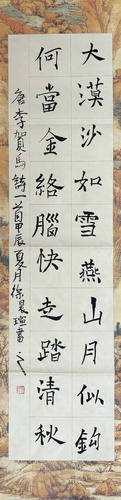 大漠沙如雪燕山月似鉤
何當金絡腦快走踏清秋
唐李賀馬詩一首甲辰夏月徐晨瑄書